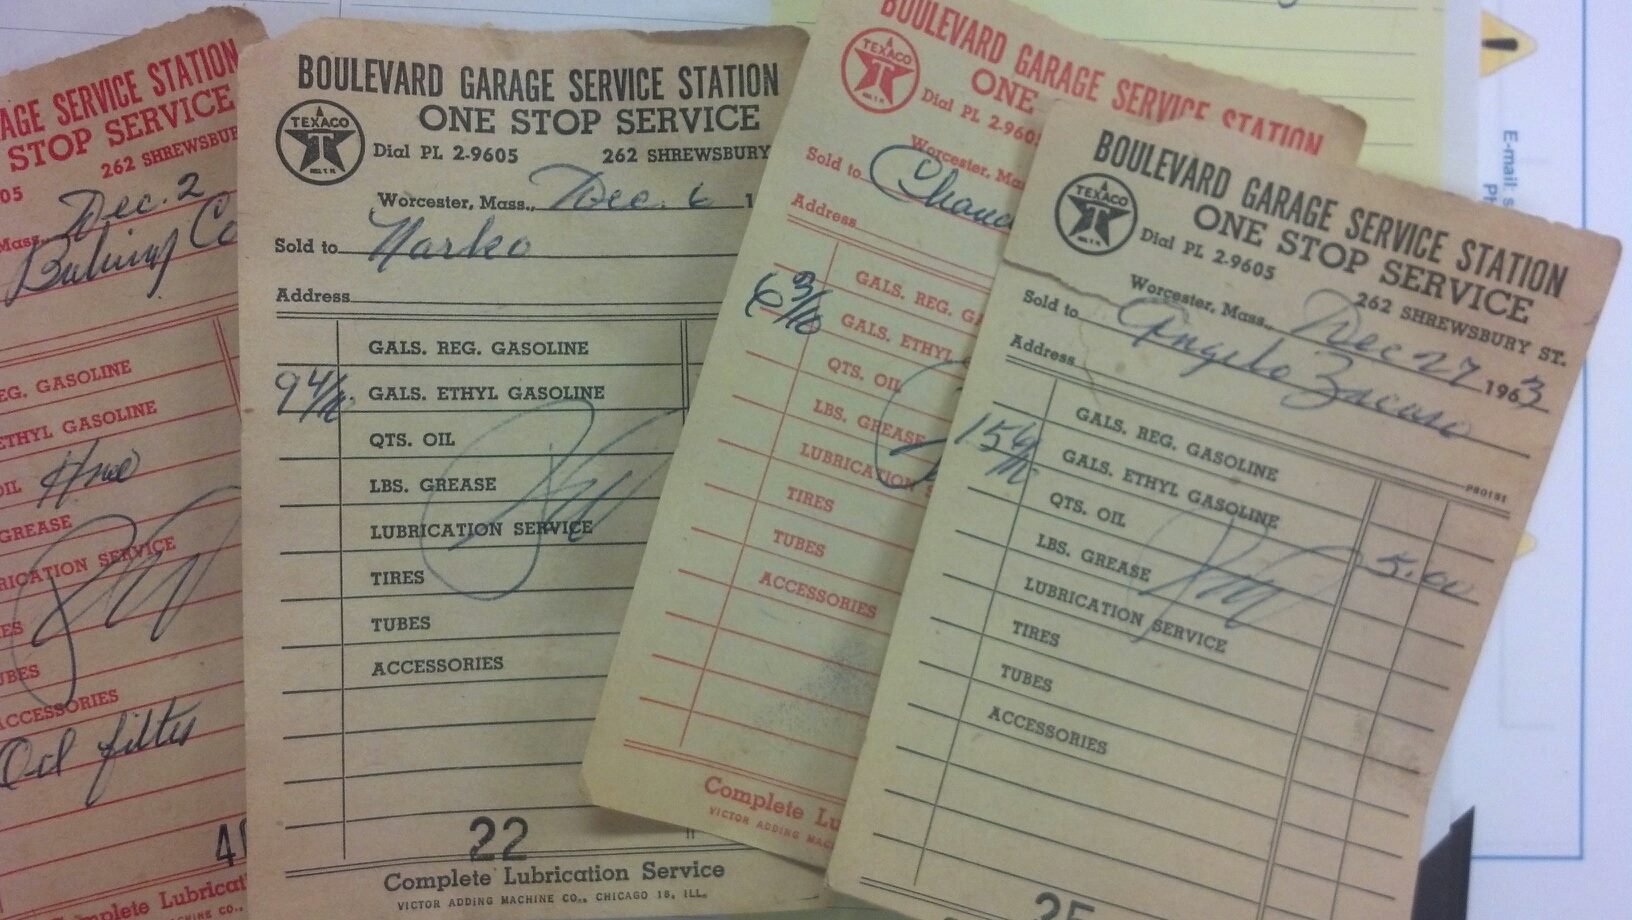 AGE SERVICE STATION
STOP SERVICE
05 262 SHREWSBUR
Mass. Dec. 2
Co
EG. GASOLINE
ETHYL GASOLINE
OIL
GREASE
RICATION SERVICE
ES
UBES
ACCESSORIES
Oil filter
mplete Lubricat
INE CO.,
BOULEVARD GARAGE SERVICE STATION
ONE STOP SERVICE
TEXACO
T
REG. T. M.
Dial PL 2-9605 262 SHREWSBURY
Worcester, Mass., Dec. 6 1
Sold to Narko
Address
GALS. REG. GASOLINE
9 4/10 GALS. ETHYL GASOLINE
QTS. OIL
LBS. GREASE
LUBRICATION SERVICE
TIRES
TUBES
ACCESSORIES
22
Complete Lubrication Service
VICTOR ADDING MACHINE CO., CHICAGO 18, ILL.
BOULEVARD GARAGE SERVICE STATION
ONE
TEXACO
T
REG. T. M.
Dial PL 2-9605
Worcester, Mas
Sold to
Address
GALS. REG. GA
6 3/10 GALS. ETHYL
QTS. OIL
LBS. GREASE
LUBRICATION S
TIRES
TUBES
ACCESSORIES
Complete Lu
VICTOR ADDING MAC
BOULEVARD GARAGE SERVICE STATION
ONE STOP SERVICE
TEXACO
T
REG. T. M.
Dial PL 2-9605 262 SHREWSBURY ST.
Worcester, Mass., Dec 27 1963
Sold to Angelo Zacaro
Address
P80181
GALS. REG. GASOLINE
15 6/10 GALS. ETHYL GASOLINE 5.00
QTS. OIL
LBS. GREASE
LUBRICATION SERVICE
TIRES
TUBES
ACCESSORIES
25
E-mail: s
Ph